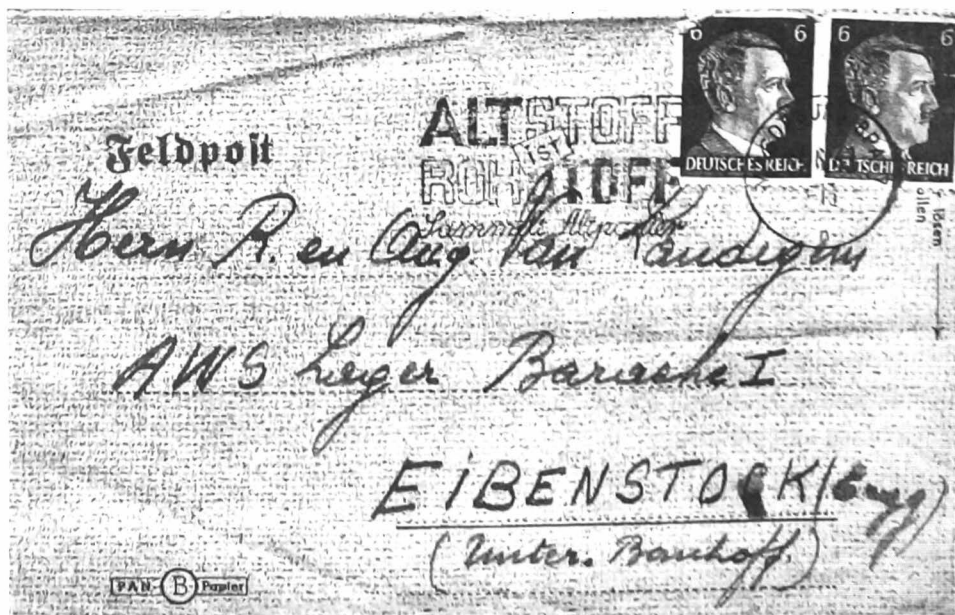 6 6 6 6
DEUTSCHES REICH DEUTSCHES REICH
ALTSTOFF
ist
ROHSTOFF
Sammelt Altpapier
Feldpost
Herrn R. en Aug Van Landegem
AWS Lager Barache I
EIBENSTOCK (Erzg)
(Unter. Banhoff)
PAN-B Papier